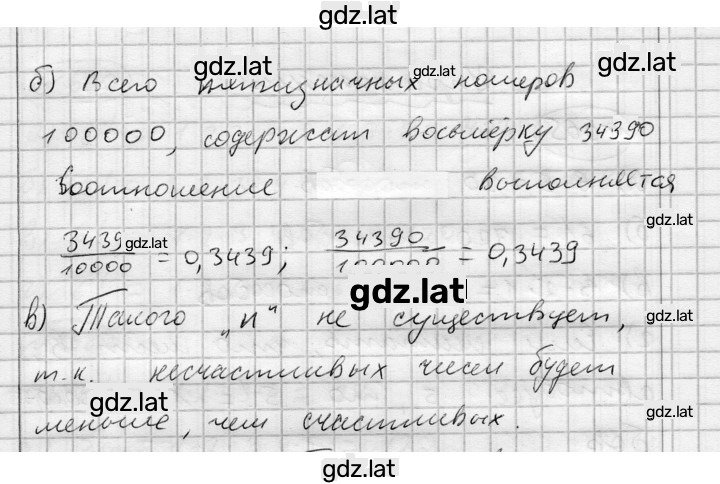 gdz.lat
б) Всего пятизначных номеров
gdz.lat gdz.lat gdz.lat
100000, содержит восьмёрку 34390
Соотношение выполняется
gdz.lat gdz.lat
3439/10000 = 0,3439; 34390/100000 = 0,3439
gdz.lat
gdz.lat
в) Такого „n" не существует,
gdz.lat
т.к. несчастливых чисел будет
gdz.lat gdz.lat
меньше, чем счастливых.
gdz.lat